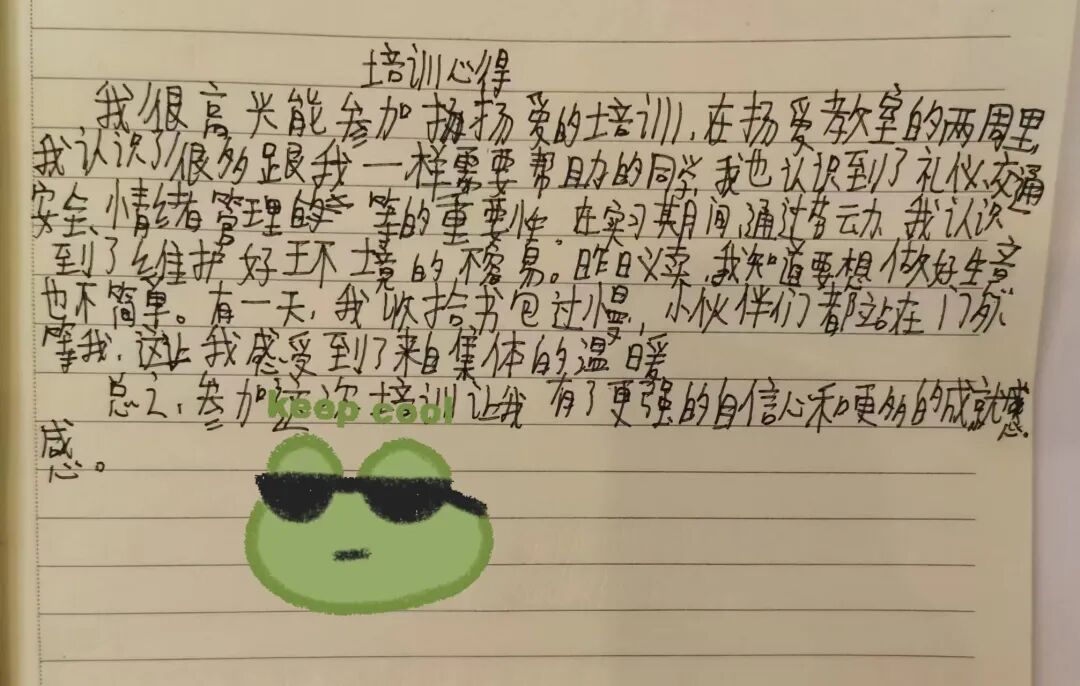 培训心得
我很高兴能参加扬扬爱的培训,在扬爱教室的两周里,
我认识了很多跟我一样需要帮助的同学,我也认识到了礼仪、交通
安全、情绪管理的等的重要性。在实习期间,通过劳动,我认识
到了维护好环境的不容易。昨日义卖,我知道要想做好生意
也不简单。有一天,我收拾书包过慢,小伙伴们都站在门外
等我,这让我感受到了来自集体的温暖
总之,参加这次培训让我有了更强的自信心和更多的成就感。
感。
keep cool